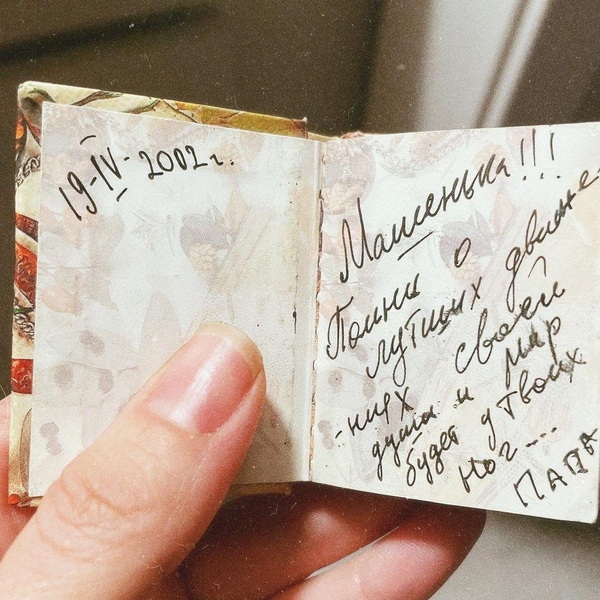 19-IV-2002г.
Машенька!!!
Помни о
лутших движе-
-ниях своей
души и мир
будет у твоих
ног....
ПАПА